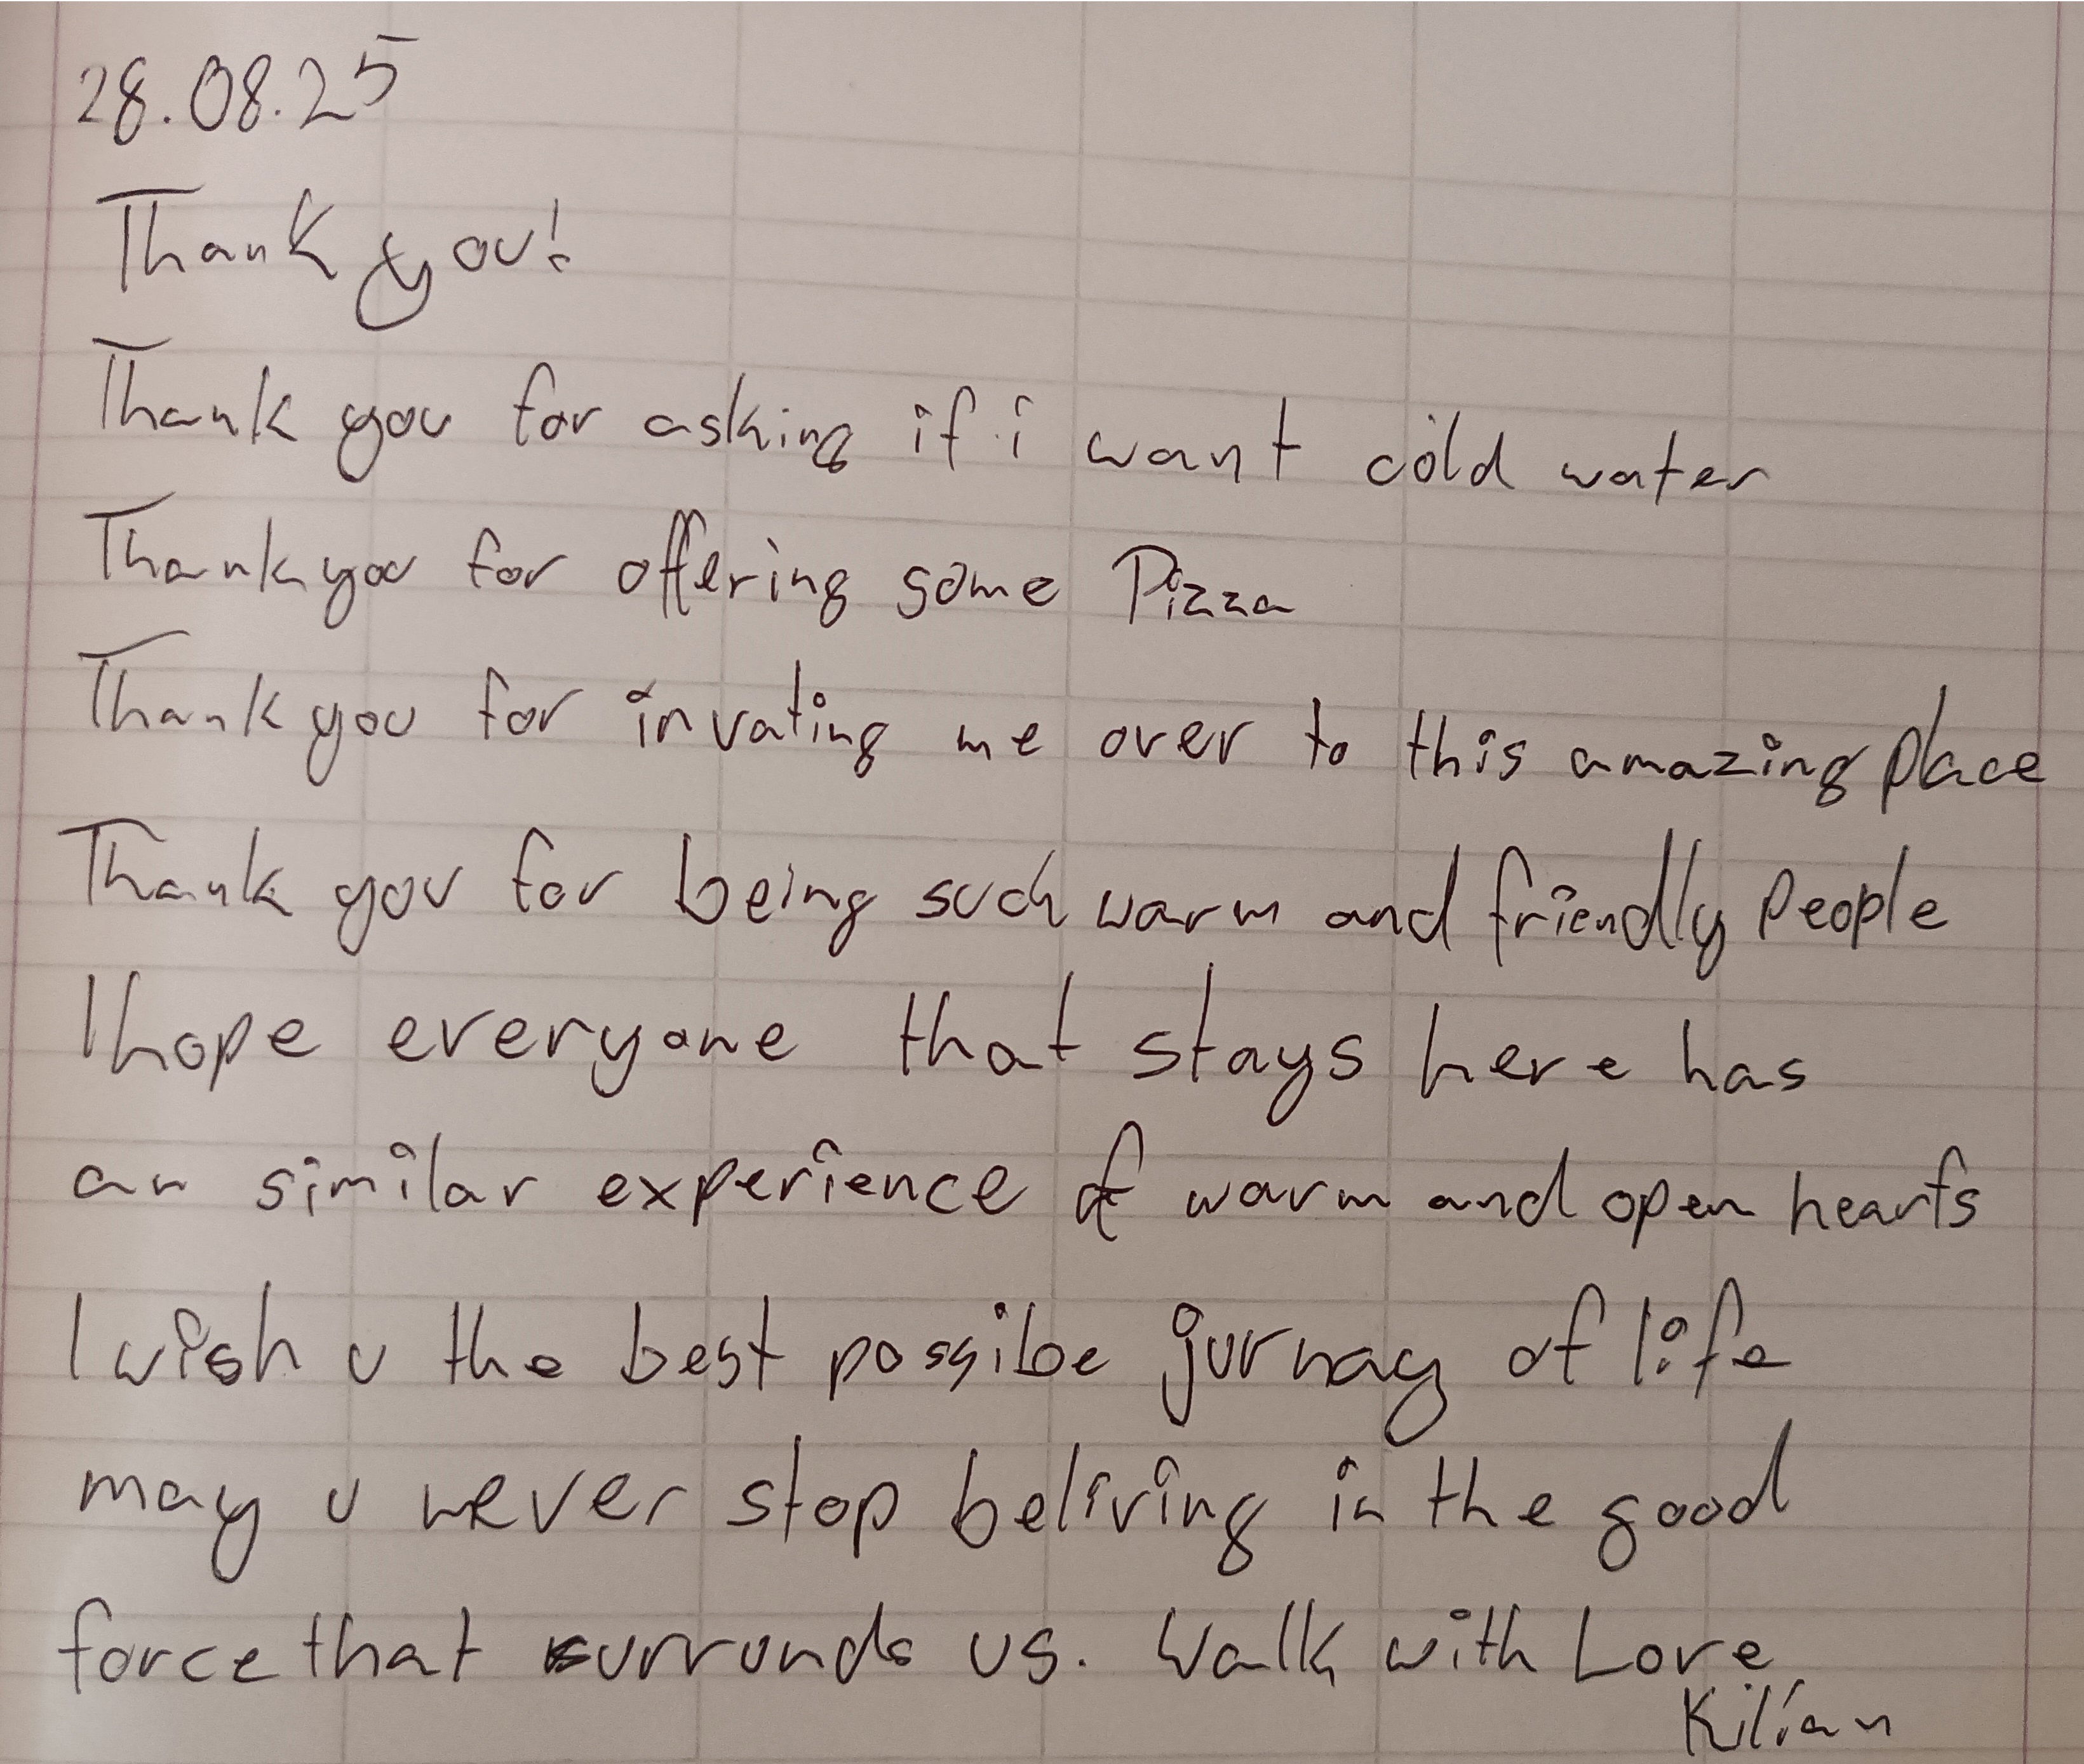 28.08.25
Thank you!
Thank you for asking if i want cold water
Thank you for offering some Pizza
Thank you for invating me over to this amazing place
Thank you for being such warm and friendly people
I hope everyone that stays here has
an similar experience of warm and open hearts
I wish u the best possibe jurnay of life
may u never stop beliving in the good
force that surrunds us. Walk with Love
Kilian